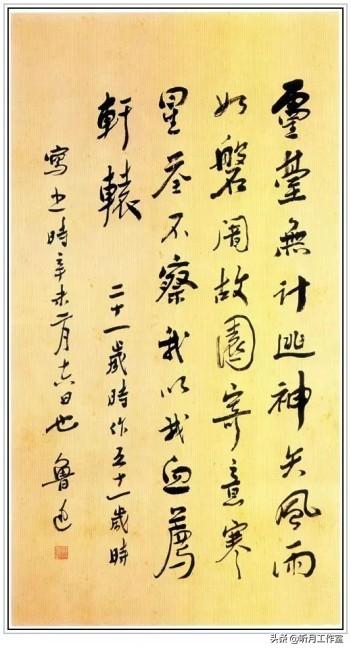 靈臺無計逃神矢風雨
如磐闇故園寄意寒
星荃不察我以我血薦
軒轅 二十一歲時作五十一歲時
寫之時辛未二月十六日也 魯迅
头条 @听月工作室